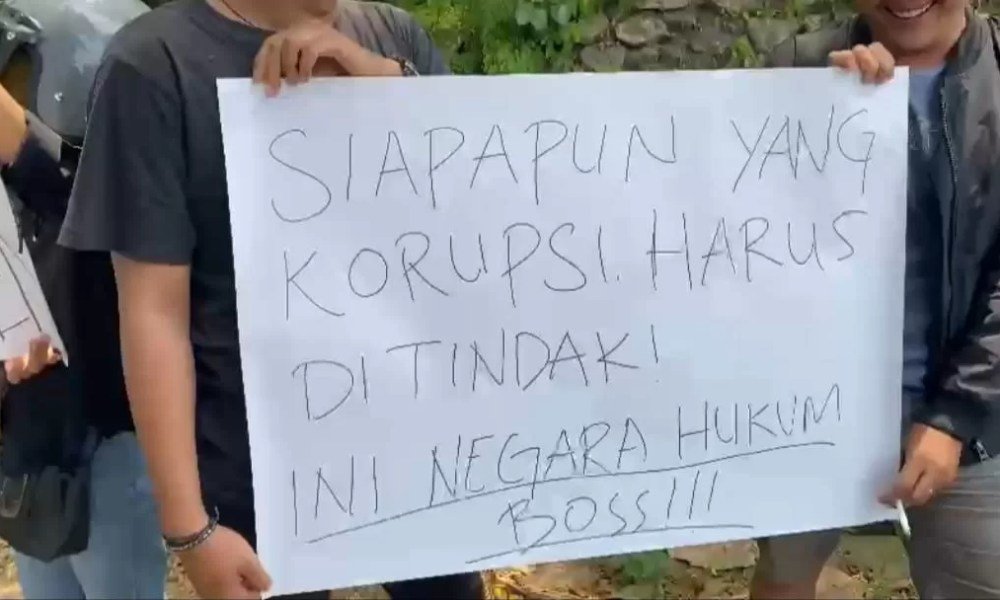 SIAPAPUN YANG
KORUPSI. HARUS
DI TINDAK!
INI NEGARA HUKUM
BOSS!!!